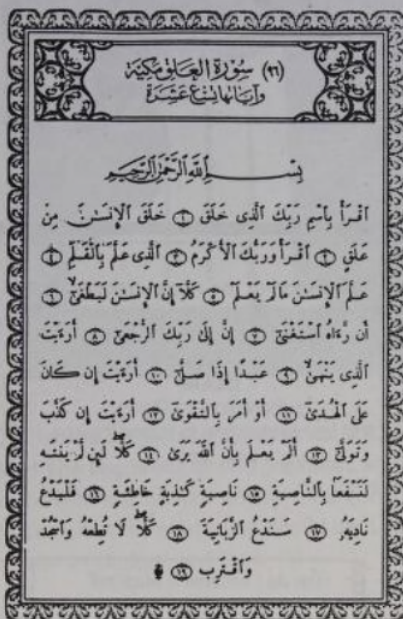 (٩٦) سورة العلق مكية
وآياتها تسع عشرة
بسم الله الرحمن الرحيم
اقْرَأْ بِاسْمِ رَبِّكَ الَّذِى خَلَقَ ١ خَلَقَ الْإِنسَٰنَ مِنْ
عَلَقٍ ٢ اقْرَأْ وَرَبُّكَ الْأَكْرَمُ ٣ الَّذِى عَلَّمَ بِالْقَلَمِ ٤
عَلَّمَ الْإِنسَٰنَ مَا لَمْ يَعْلَمْ ٥ كَلَّا إِنَّ الْإِنسَٰنَ لَيَطْغَىٰٓ ٦
أَن رَّءَاهُ اسْتَغْنَىٰٓ ٧ إِنَّ إِلَىٰ رَبِّكَ الرُّجْعَىٰٓ ٨ أَرَءَيْتَ
الَّذِى يَنْهَىٰ ٩ عَبْدًا إِذَا صَلَّىٰٓ ١٠ أَرَءَيْتَ إِن كَانَ
عَلَى الْهُدَىٰٓ ١١ أَوْ أَمَرَ بِالتَّقْوَىٰٓ ١٢ أَرَءَيْتَ إِن كَذَّبَ
وَتَوَلَّىٰٓ ١٣ أَلَمْ يَعْلَم بِأَنَّ اللَّهَ يَرَىٰ ١٤ كَلَّا لَئِن لَّمْ يَنتَهِ
لَنَسْفَعًا بِالنَّاصِيَةِ ١٥ نَاصِيَةٍ كَٰذِبَةٍ خَاطِئَةٍ ١٦ فَلْيَدْعُ
نَادِيَهُۥ ١٧ سَنَدْعُ الزَّبَانِيَةَ ١٨ كَلَّا لَا تُطِعْهُ وَاسْجُدْ
وَاقْتَرِب ١٩